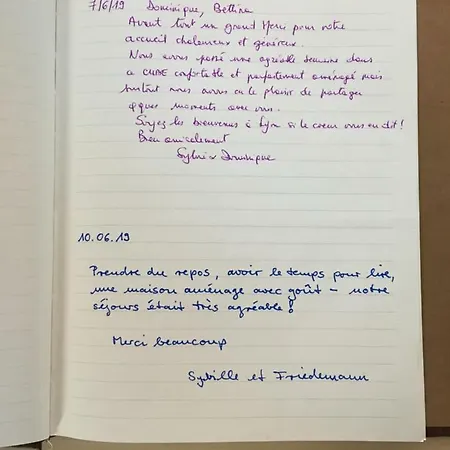 7/6/19 Dominique, Bettina
Avant tout un grand Merci pour votre
accueil chaleureux et généreux.
Nous avons passé une agréable semaine dans
confortable et parfaitement aménagé mais
surtout nous avons eu le plaisir de partager
qques moments avec vous.
Soyez les bienvenues à Lyon si le coeur vous en dit !
Bien amicalement
Dominique
10.06.19
Prendre du repos, avoir le temps pour lire,
une maison aménage avec goût – notre
séjours était très agréable !
Merci beaucoup
Sybille et Friedemann